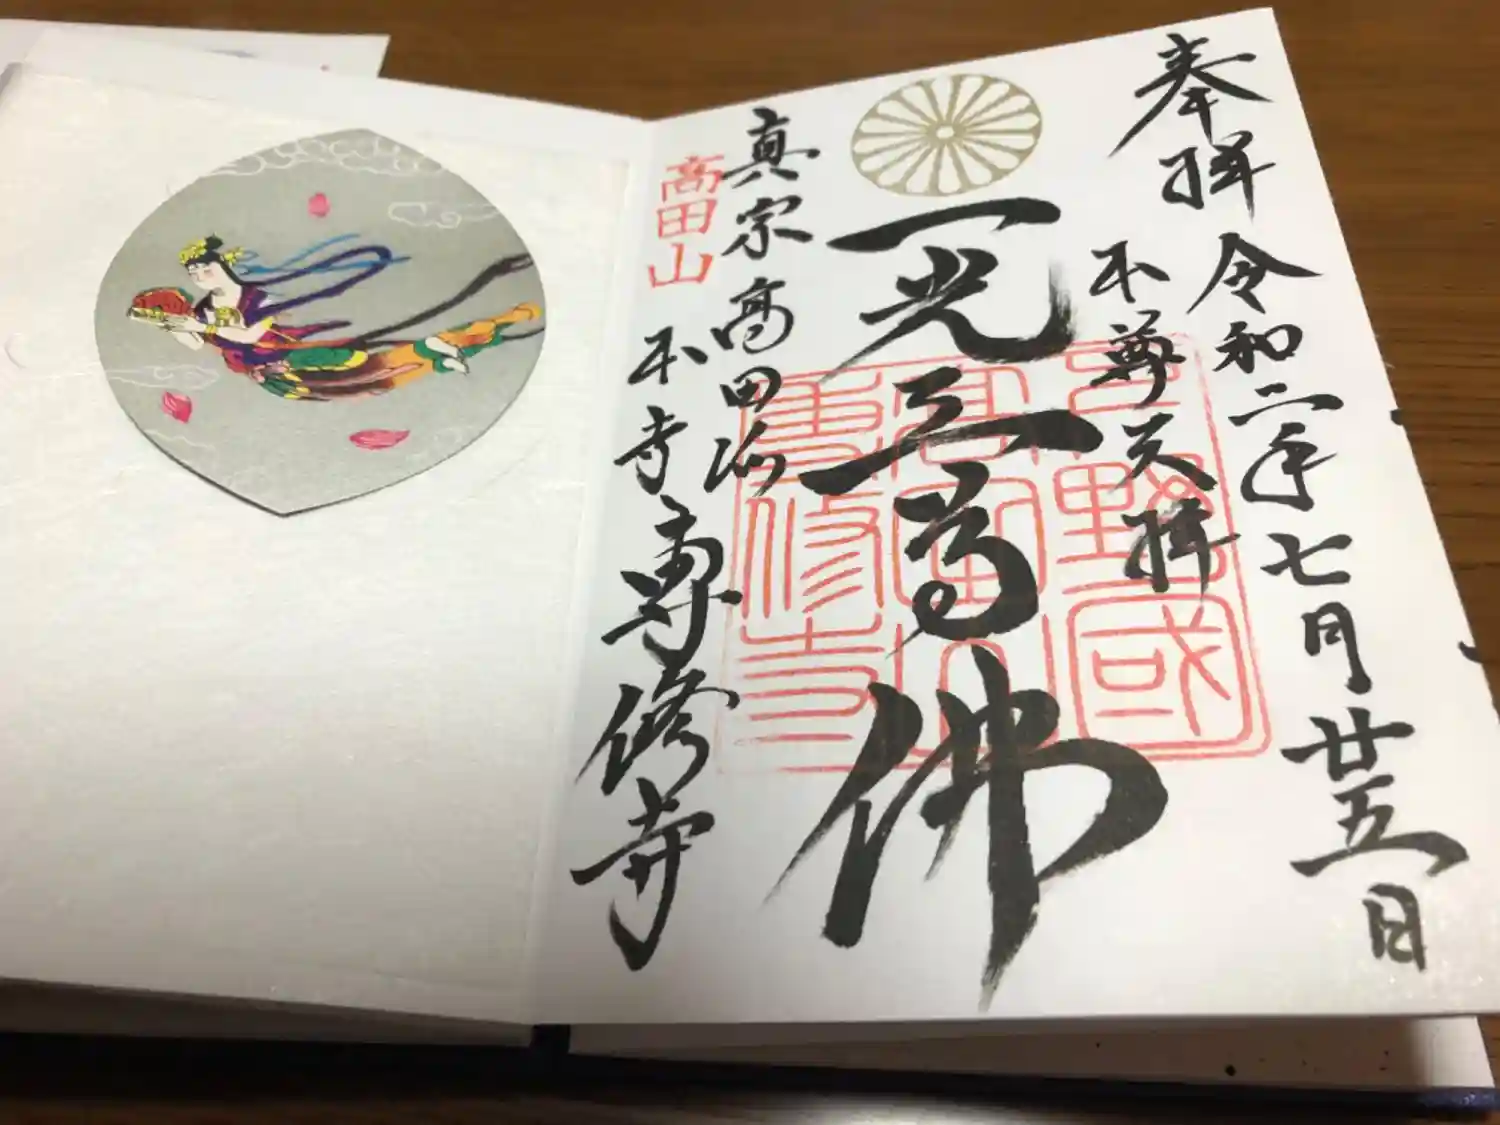 奉拝
令和二年七月廿五日
本尊天拝
一光三尊佛
真宗高田派
高田山
本寺専修寺
下野國
高田山
専修寺